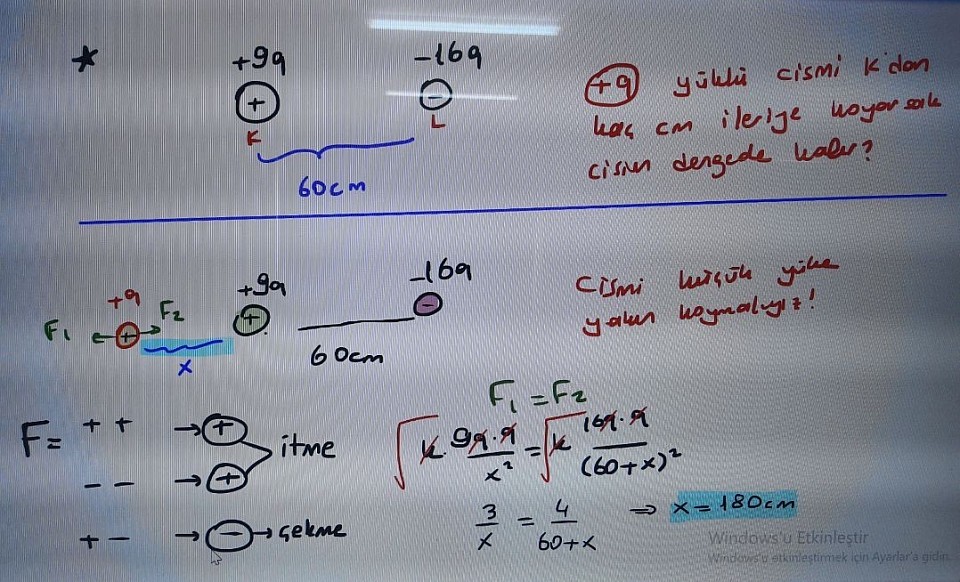 * +9q -16q
+ -
K L
60cm
+q yüklü cismi K'dan
kaç cm ileriye koyarsak
cisim dengede kalır?
+q +9q -16q
F1 + F2 + -
x 60cm
Cismi küçük yüke
yakın koymalıyız!
F1 = F2
F= + + → + itme
- - → +
+ - → - → çekme
√k·9q·q/x² = √k 16q·q/(60+x)²
3/x = 4/60+x ⇒ x = 180cm
Windows'u Etkinleştir
Windows'u etkinleştirmek için Ayarlar'a gidin.